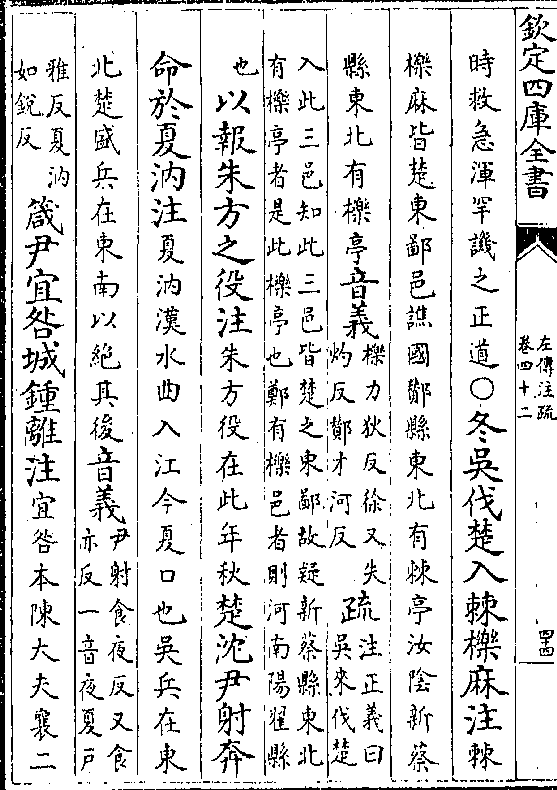 欽定四庫全書
左傳注疏
卷四十二
四十四
時救急渾罕譏之正道○冬吳伐楚入棘櫟麻注棘
櫟麻皆楚東鄙邑譙國酇縣東北有棘亭汝陰新蔡
縣東北有櫟亭音義
櫟力狄反徐又失
灼反酇才河反
疏
注正義曰
吳來伐楚
入此三邑知此三邑皆楚之東鄙故疑新蔡縣東北
有櫟亭者是此櫟亭也鄭有櫟邑者則河南陽翟縣
也
以報朱方之役注朱方役在此年秋楚沈尹射奔
命於夏汭注夏汭漢水曲入江今夏口也吳兵在東
北楚盛兵在東南以絶其後音義
尹射食夜反又食
亦反一音夜夏戶
雅反夏汭
如銳反
箴尹宜咎城鍾離注宜咎本陳大夫襄二